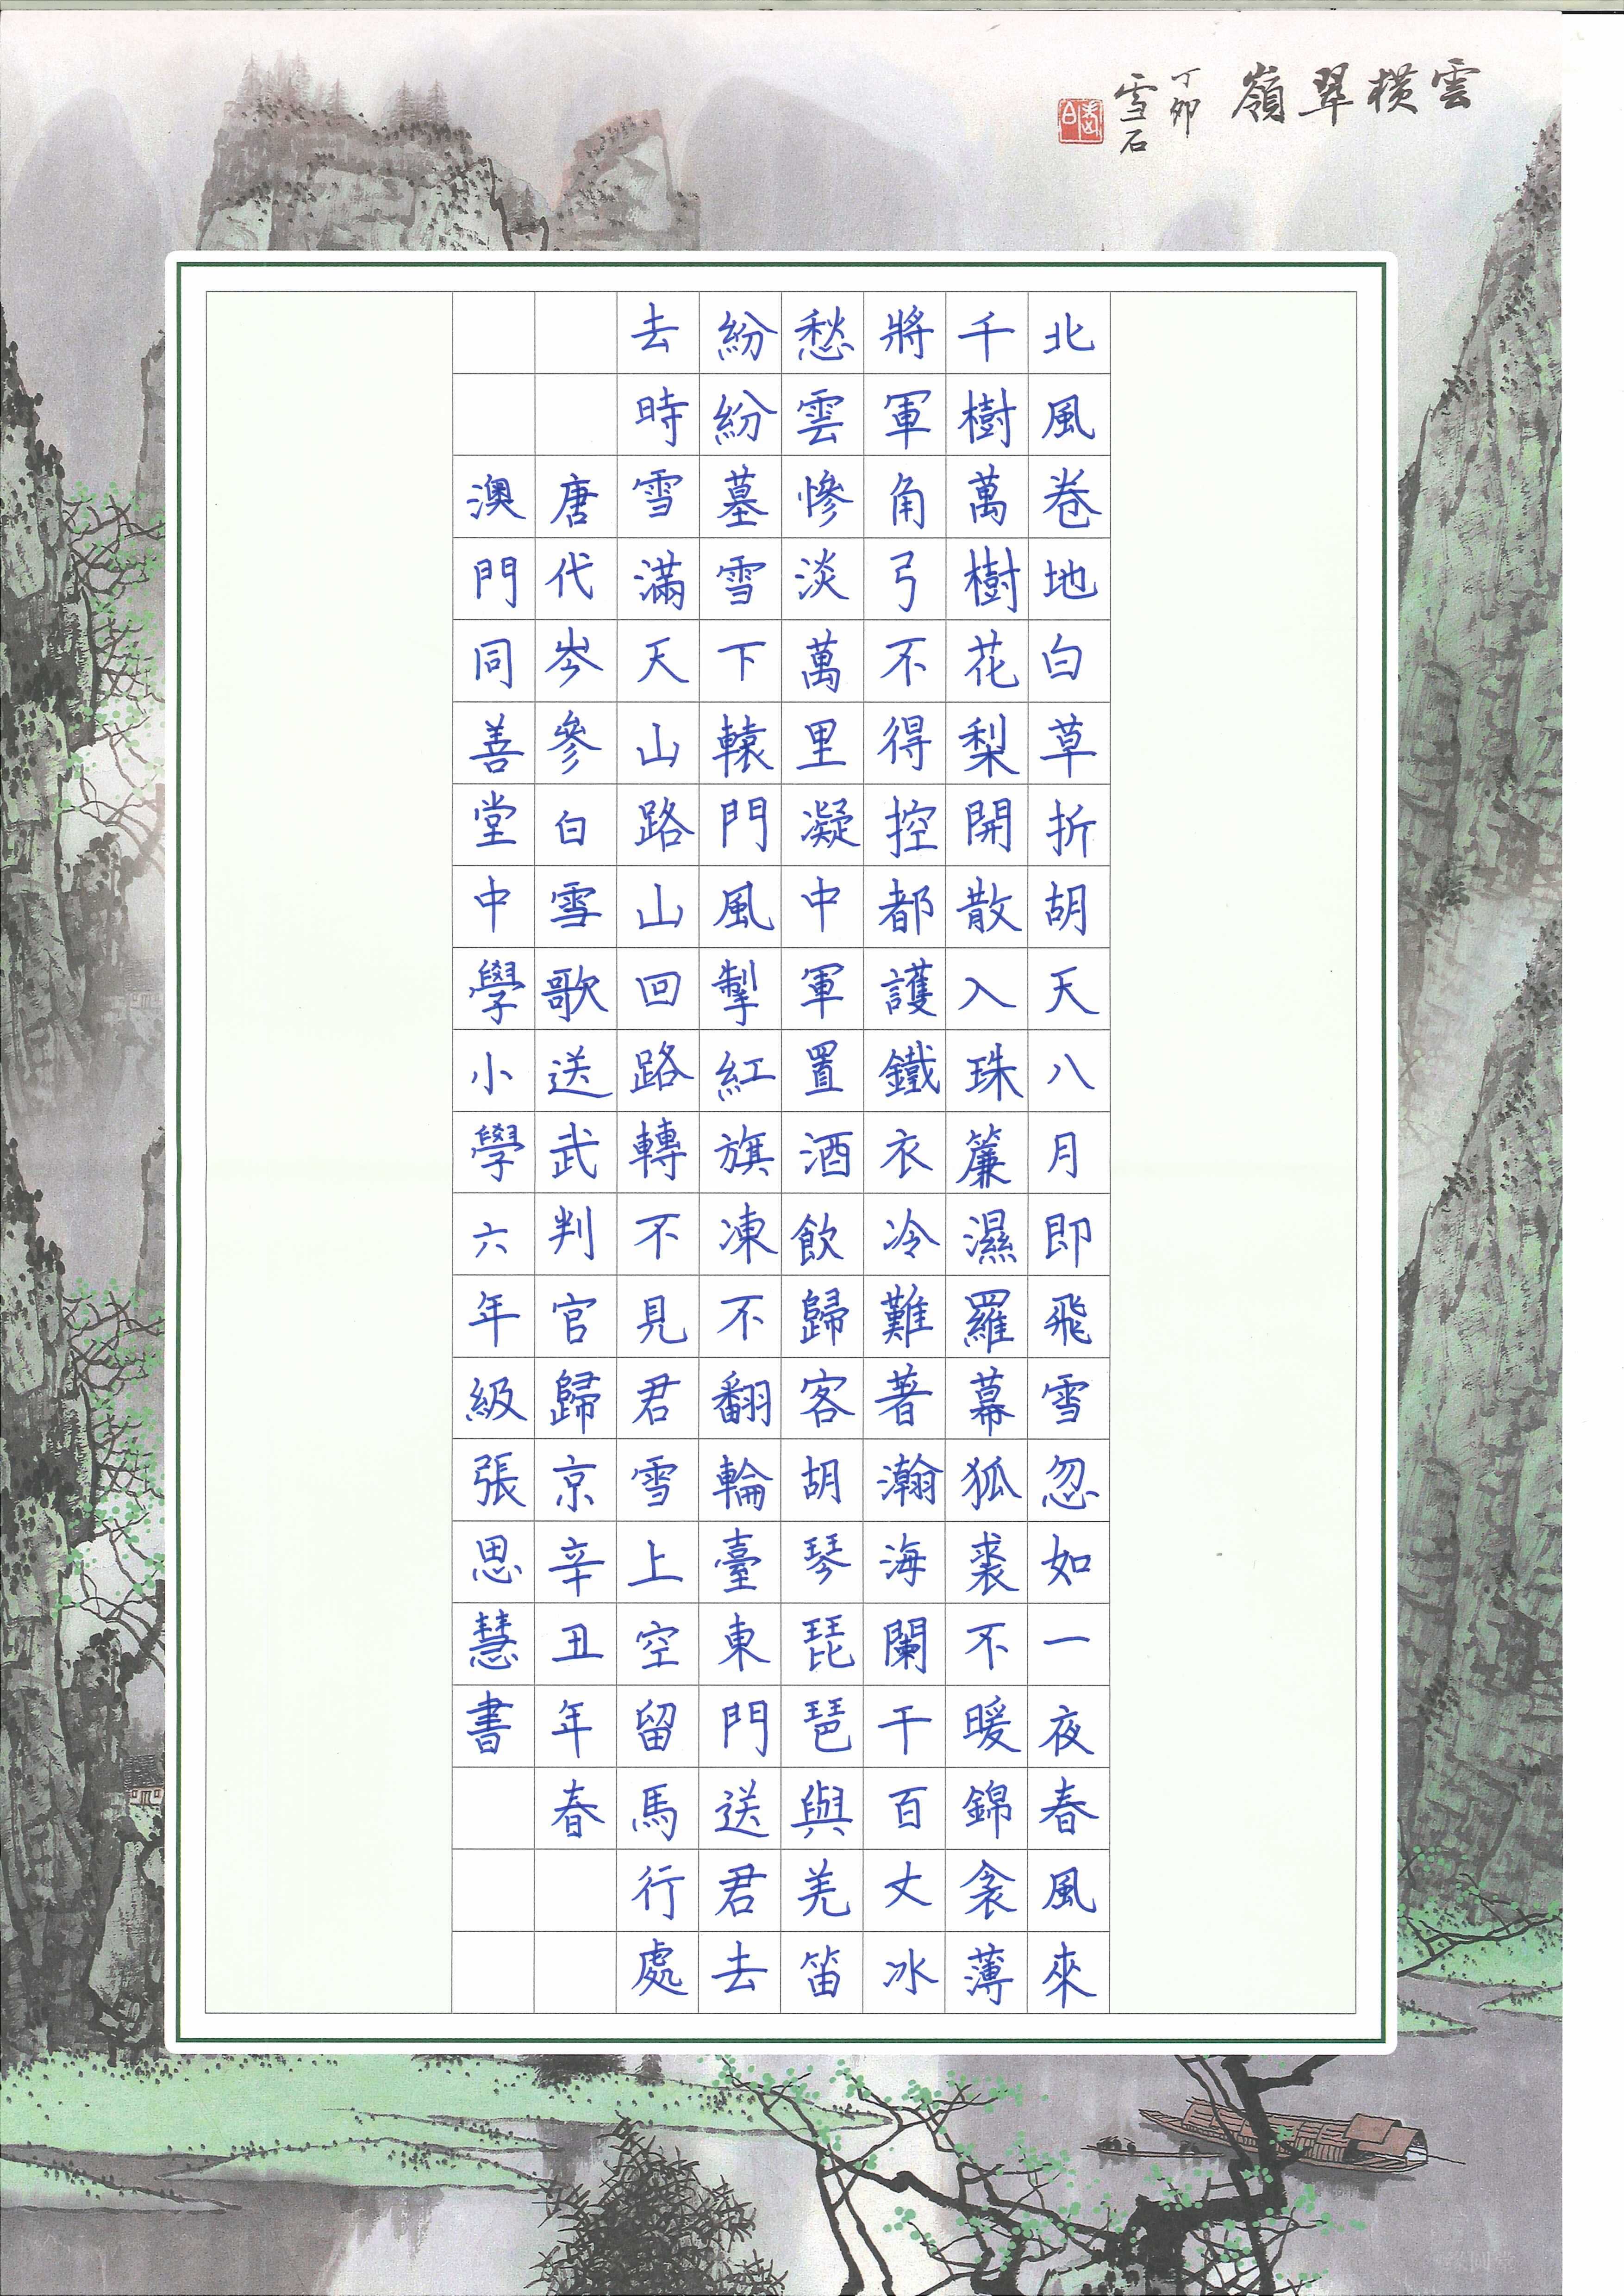 雲橫翠嶺
丁卯
雪石
北風卷地白草折胡天八月即飛雪忽如一夜春風來
千樹萬樹花梨開散入珠簾濕羅幕狐裘不暖錦衾薄
將軍角弓不得控都護鐵衣冷難著瀚海闌干百丈冰
愁雲慘淡萬里凝中軍置酒飲歸客胡琴琵琶與羌笛
紛紛墓雪下轅門風掣紅旗凍不翻輪臺東門送君去
去時雪滿天山路山回路轉不見君雪上空留馬行處
唐代岑參白雪歌送武判官歸京辛丑年春
澳門同善堂中學小學六年級張思慧書